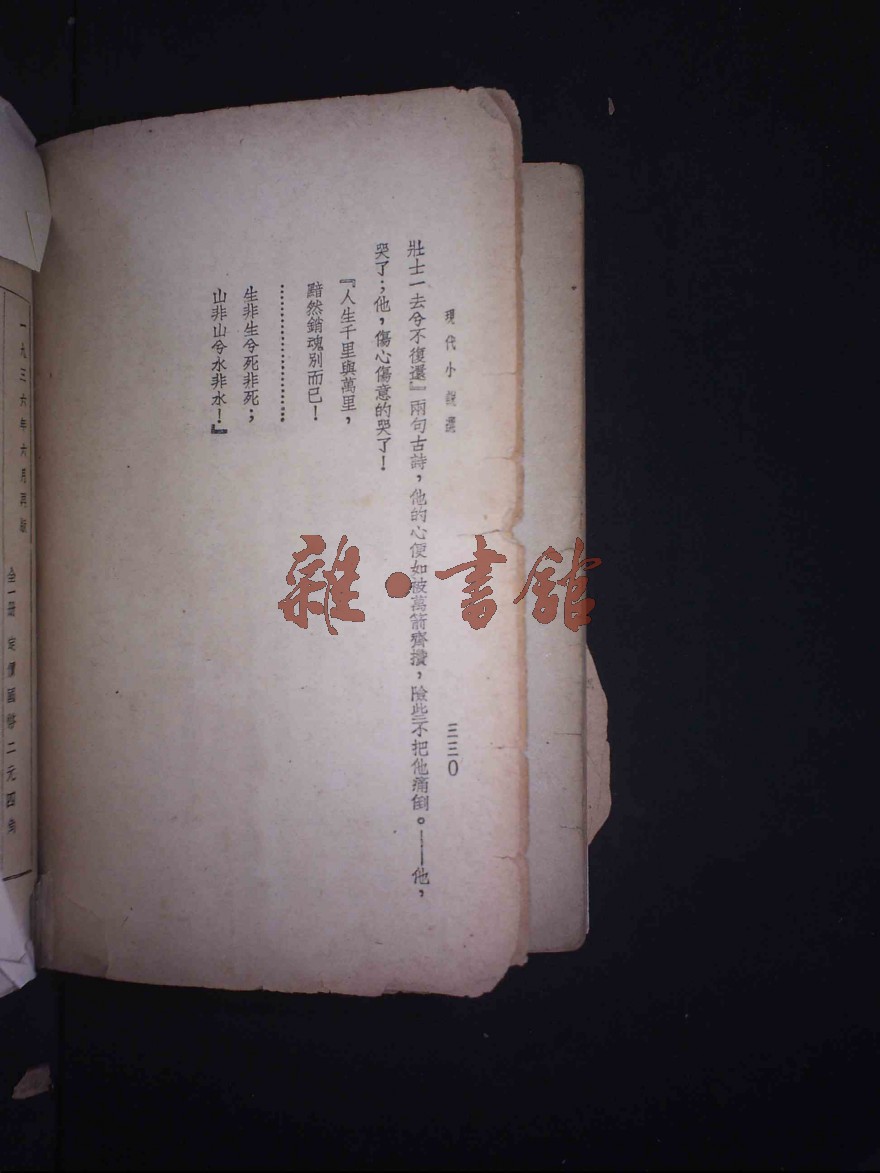 現代小說選
三三〇
壯士一去兮不復還』兩句古詩，他的心便如被萬箭齊攢，險些不把他痛倒。——他，
哭了；他，傷心傷意的哭了！
『人生千里與萬里，
黯然銷魂別而已！
…………………
生非生兮死非死；
山非山兮水非水！』
一九三六年六月再版
全一册 定價國幣二元四角
雜·書館